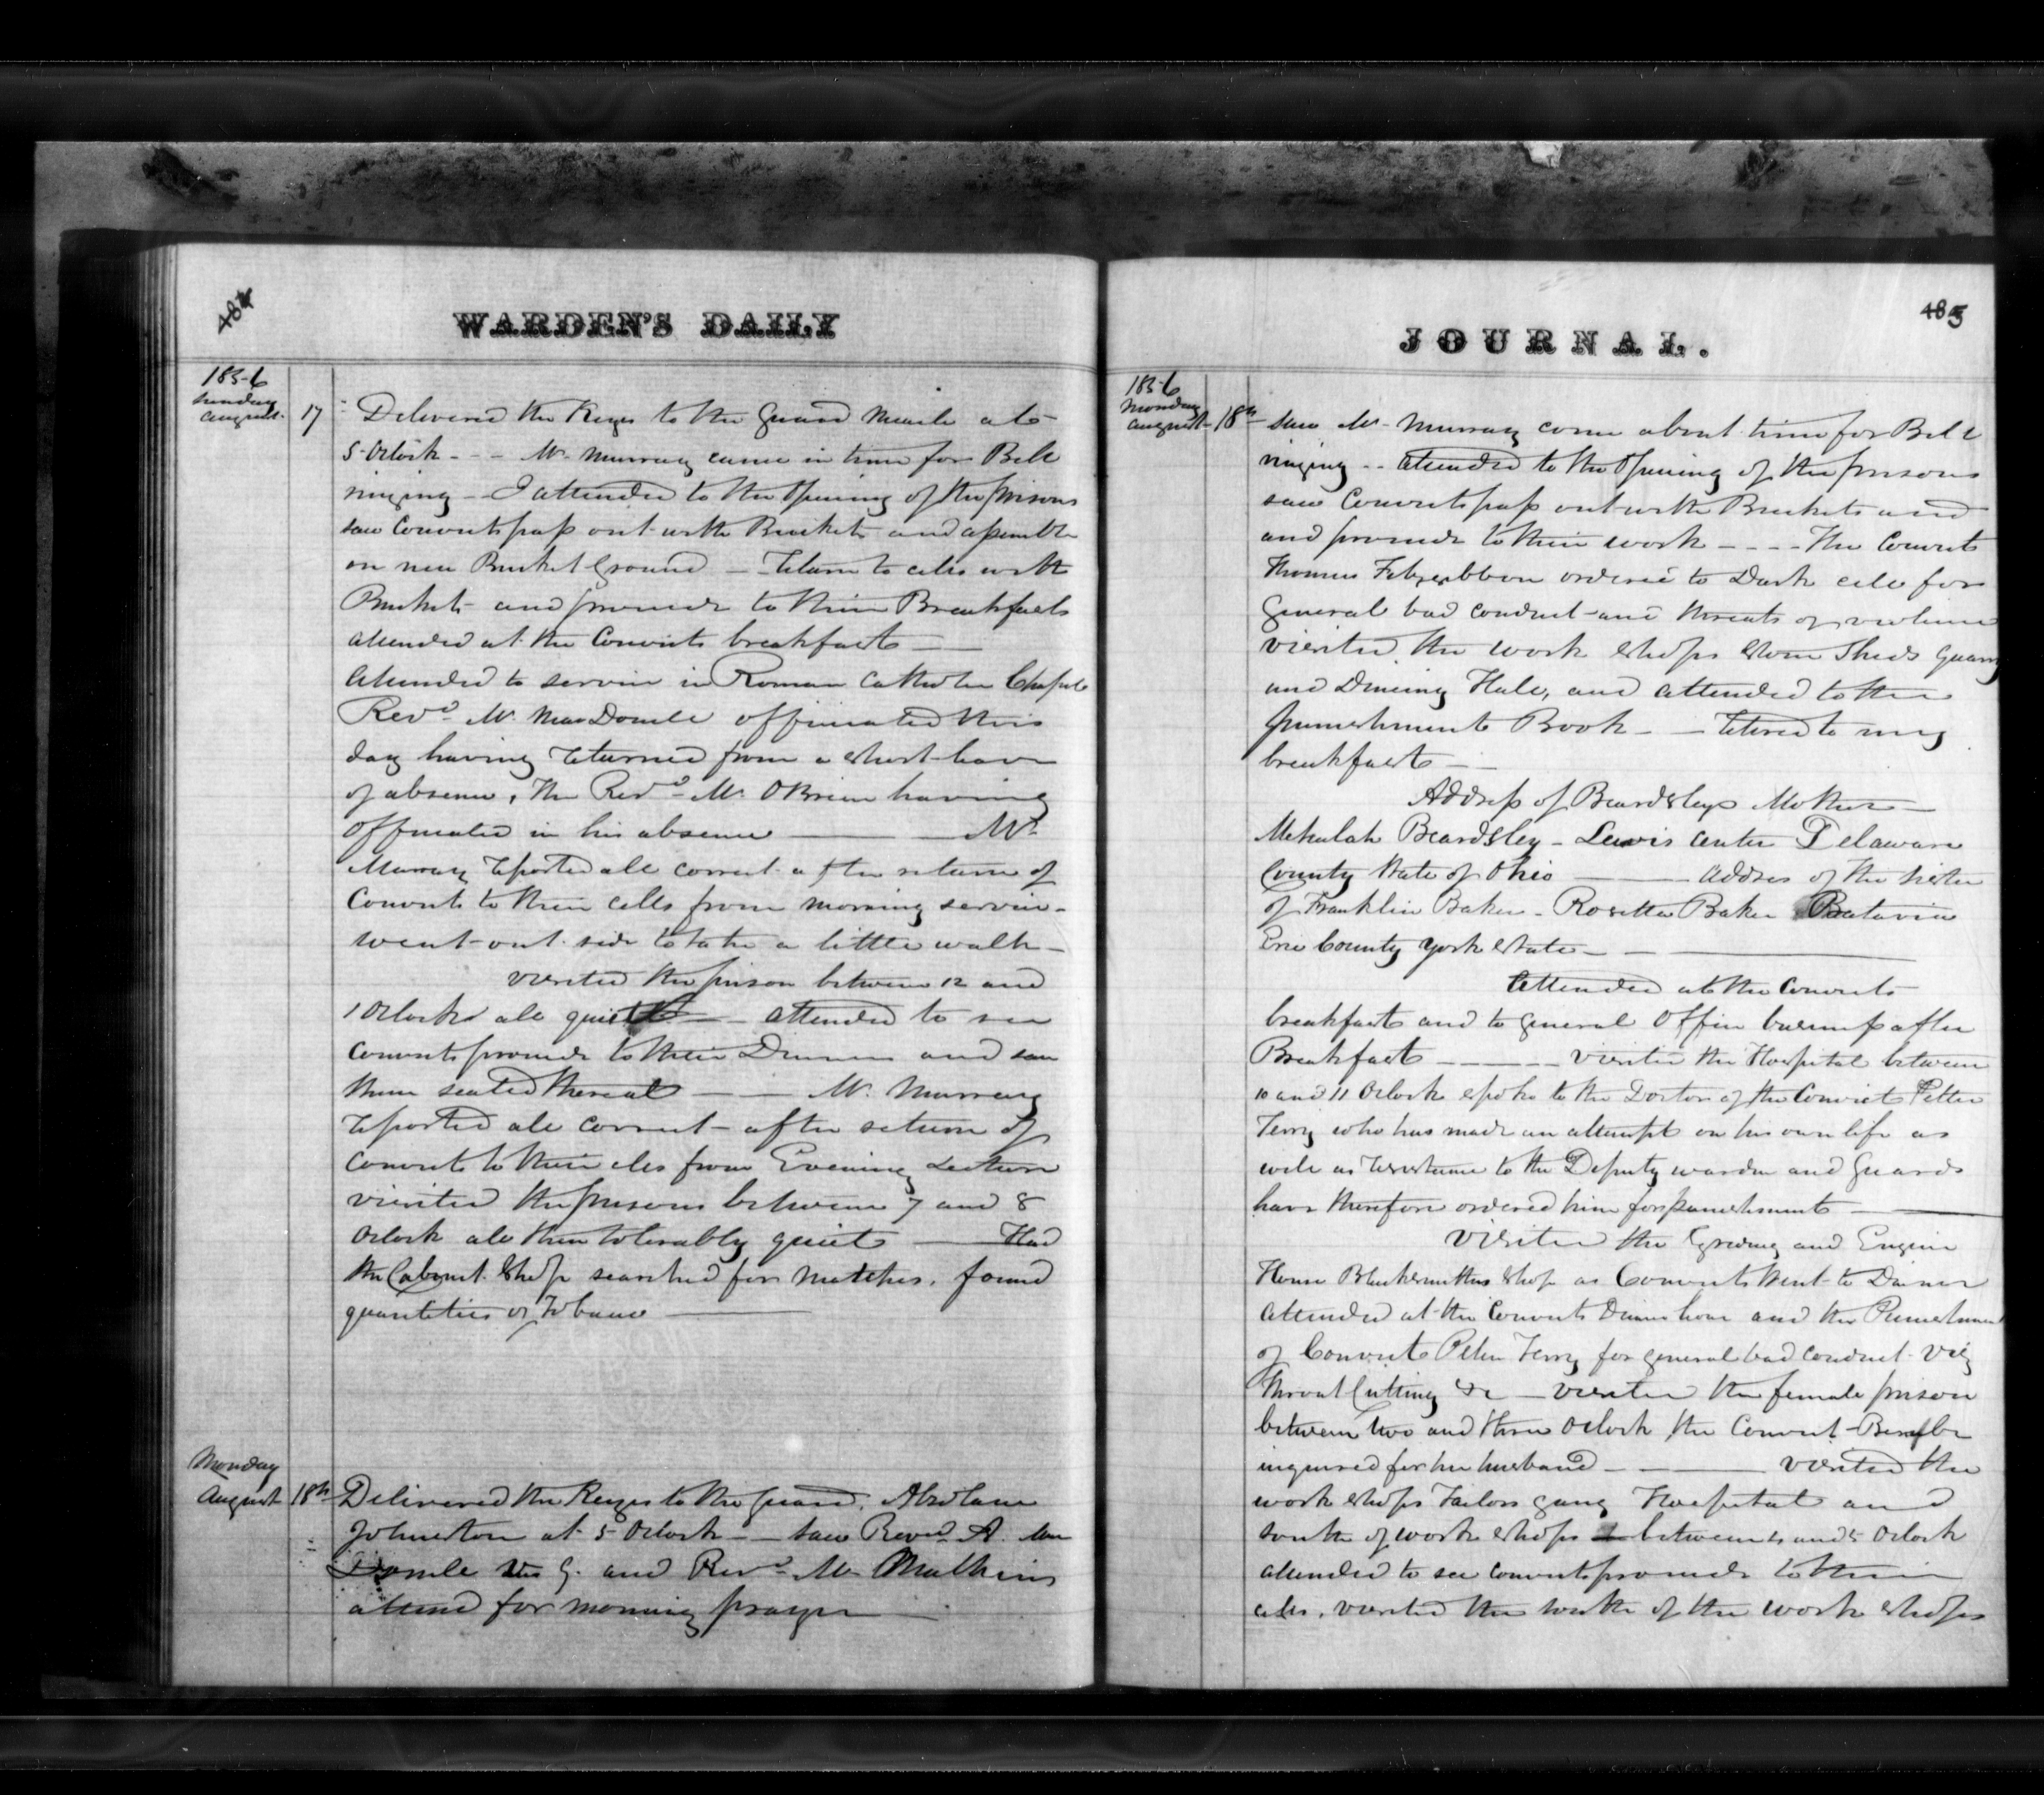 484
WARDEN'S DAILY
1856
Sunday
August 17 Delivered the Keys to the Guard at
5 Oclock - - - Mr. Murray came in time for Bell
ringing - - I attended to the Opening of the prisons
saw Convicts pass out with Buckets and assemble
on new Bucket Ground - return to cells with
Buckets and proceed to their Breakfasts
attended at the Convicts breakfast
Attended to service in Roman Catholic Chapel
Revd. Mr. MacDonell officiated this
day having returned from a short leave
of absence, The Revd. Mr. OBrien having
officiated in his absence Mr.
Murray reported all correct after return of
Convicts to their cells from morning service -
went out side to take a little walk -
visited the prison between 12 and
1 Oclock all quiet - attended to see
Convicts proceed to their Dinner and saw
them seated thereat - - Mr. Murray
reported all correct after return of
Convicts to their cles from Evening Lecture
visited the prisons between 7 and 8
Oclock all then tolerably quiet Had
the Cabinet Shop searched for matches, found
quantities of Tobacco
Monday
August 18th Delivered the Keys to the guard,
Johnston at 5 Oclock - saw Revd. A. Mac
Donell G. and Revd. Mr. Mulkins
attend for morning prayer
JOURNAL.
485
1856
Monday
August 18th saw Mr. Murray come about time for Bell
ringing - - attended to the Opening of the prisons
saw Convicts pass out with Buckets and
and proceed to their work - - - - The Convict
Thomas Fitzgibbon ordered to Dark cell for
General bad conduct and threats of violence
visited the work shops Stone Sheds Quarry
and Dineing Hall, and attended to the
punishment Book - - retired to my
breakfast -
Address of Beardsleys Mother -
Mehulah Beardsley - Lewis Center Delaware
County State of Ohio Address of the sister
of Franklin Baker - Rosetta Baker Batavia
Erie County York State - -
Attended at the Convicts
breakfast and to general Office business after
Breakfast visited the Hospital between
10 and 11 Oclock spoke to the Doctor of the Convict Petter
Terry who has made an attempt on his own life as
well as resistance to the Deputy warden and Guards
have therefore ordered him for punishment
visited the and Engine
House Blacksmiths shop as Convicts went to Dinner
attended at the Convicts Dinner hour and the Punishment
of Convict Peter Terry for general bad conduct viz
Throat Cutting &c - visited the female prison
between two and three Oclock the Convict
inquired for her husband - visited the
work shops Tailors gang Hospital and
south of work shops between 4 and 5 Oclock
attended to see convicts proceed to their
cells, visited the south of the work shops